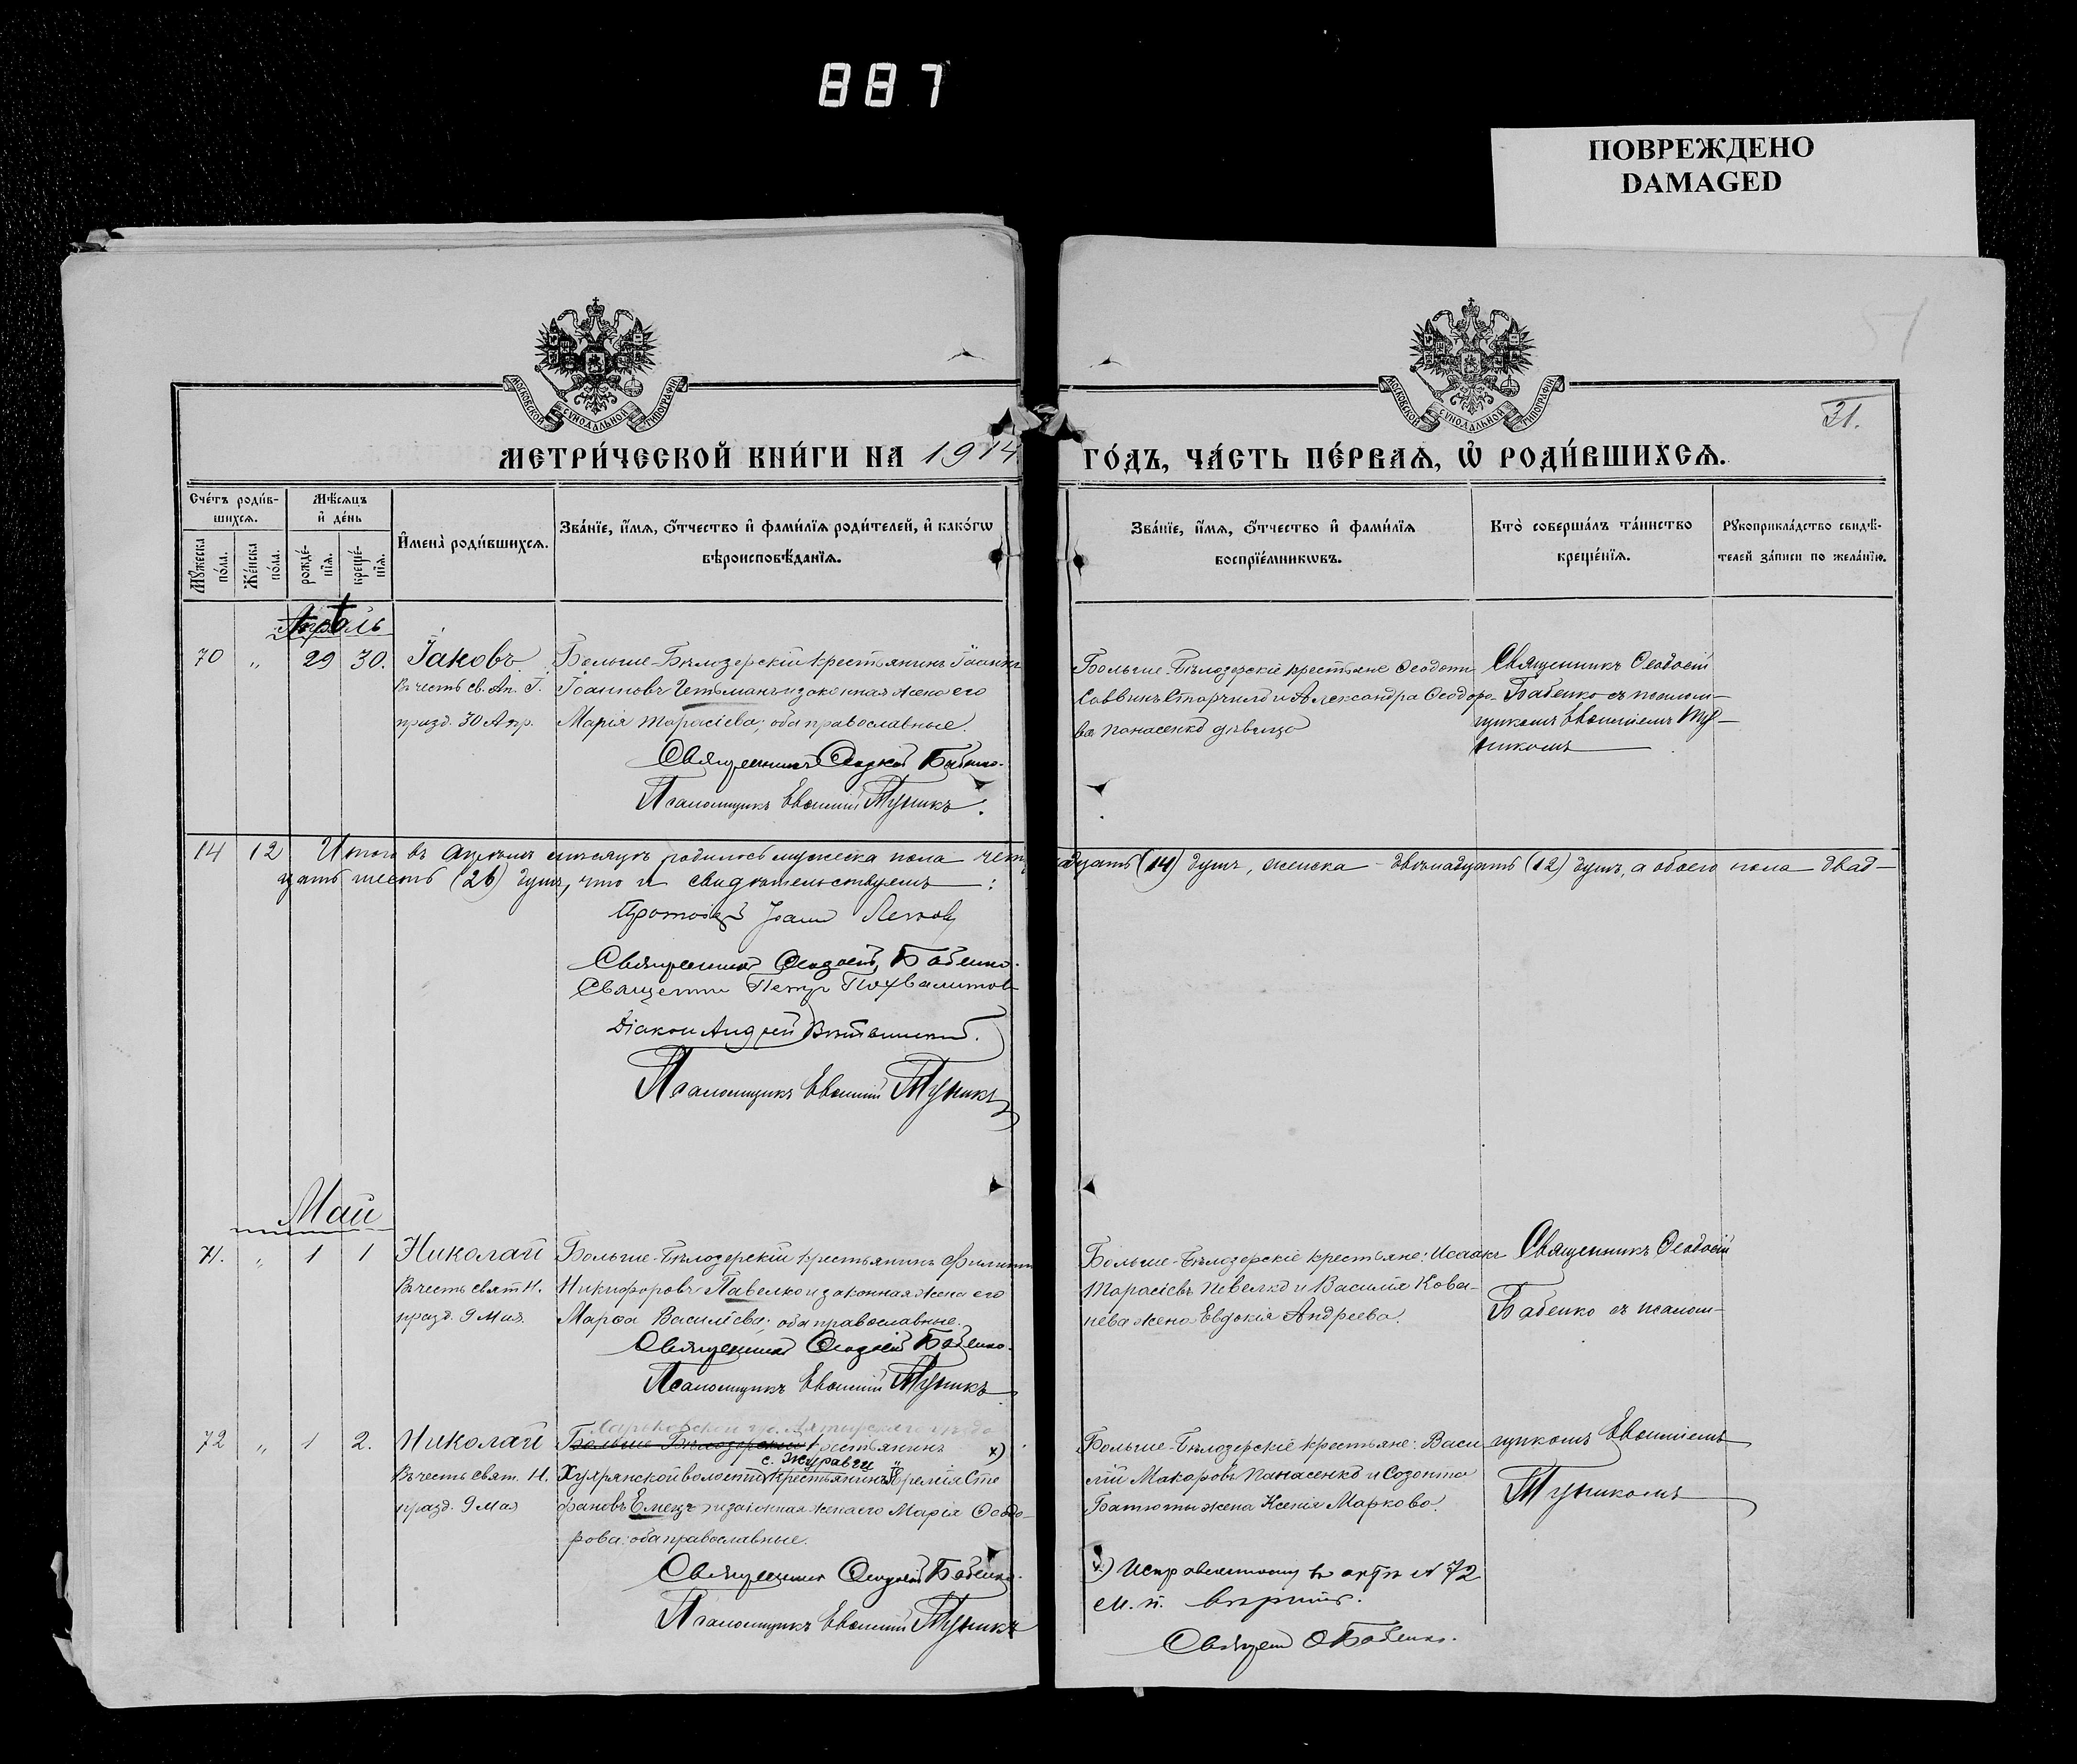 887
ПОВРЕЖДЕНО
DAMAGED
МОСКОВСКОЙ СѴНОДАЛЬНОЙ ТИПОГРАФІИ
МОСКОВСКОЙ СѴНОДАЛЬНОЙ ТИПОГРАФІИ
31.
МЕТРИ́ЧЕСКОЙ КНИ́ГИ НА 1914
ГО́ДЪ, ЧА́СТЬ ПЕ́РВАѦ, Ѡ҆ РОДИ́ВШИХСѦ.
Сче́тъ роди́в-
шихсѧ.
Мꙋ́жеска по́ла.
Же́нска по́ла.
Мѣ́сѧцъ
и҆ де́нь
рожде́-
нїѧ.
креще́-
нїѧ.
И҆мена̀ роди́вшихсѧ.
Зва́нїе, и҆́мѧ, ѻ҆́тчество и҆ фами́лїѧ роди́телей, и҆ како́гѡ
вѣроисповѣ́данїѧ.
Зва́нїе, и҆́мѧ, ѻ҆́тчество и҆ фами́лїѧ
воспрїе́мникѡвъ.
Кто̀ соверша́лъ та́инство
креще́нїѧ.
Рꙋкоприкла́дство свидѣ́-
телей за́писи по жела́нїю.
Апрѣль
70 „ 29 30. Іаковъ
Въ честь св. Ап. І.
празд. 30 Апр.
Больше-Бѣлозерскій крестьянинъ Іоаннъ
Іоанновъ Гетьманъ и законная жена его
Марія Тарасіева; оба православные.
Священникъ Ѳеодосій Бабенко.
Псаломщикъ Евѳимій Тупикъ.
Больше-Бѣлозерскіе крестьяне Ѳеодотъ
Саввинъ и Александра Ѳеодоро-
ва Панасенко дѣвица
Священникъ Ѳеодосій
Бабенко съ псалом-
щикомъ Евѳиміемъ Ту-
пикомъ
14 12 Итого въ Апрѣлѣ мѣсяцѣ родилось мужеска пола четы надцать (14) душъ, женска - двѣнадцать (12) душъ, а обоего пола двад-
цать шесть (26) душъ, что и свидѣтельствуемъ:
Священникъ Ѳеодосій Бабенко.
Священникъ Петръ Похвалитовъ
Діаконъ Андрей
Псаломщикъ Евѳимій Тупикъ
Май
71. „ 1 1 Николай
Въ честь свят. Н.
празд. 9 Мая.
Больше-Бѣлозерскій крестьянинъ Филиппъ
Никифоровъ Павелко и законная жена его
Марѳа Василіева; оба православные.
Священникъ Ѳеодосій Бабенко.
Псаломщикъ Евѳимій Тупикъ
Больше-Бѣлозерскіе крестьяне: Исаакъ
Тарасіевъ Павелко и Василія Кова-
лева жена Евдокія Андреева.
Священникъ Ѳеодосій
Бабенко съ псалом-
72 „ 1 2. Николай
Въ честь свят. Н.
празд. 9 Мая
Харьковской гу. Ахтырскаго уѣзда
Больше-Бѣлозерскій крестьянинъ х)
с. Журавли
Хухрянской волости крестьянинъ Еремія Сте
фановъ Емецъ и законная жена его Марія Ѳеодо-
рова; оба православные.
Священникъ Ѳеодосій Бабенко.
Псаломщикъ Евѳимій Тупикъ
Больше-Бѣлозерскіе крестьяне: Васи
лій Макаровъ Панасенко и Созонта
Батюты жена Ксенія Маркова.
щикомъ Евѳиміемъ
Тупикомъ
х) Исправленному въ актѣ № 72
м. п. вѣрить.
Священ Ѳ Бабенко.